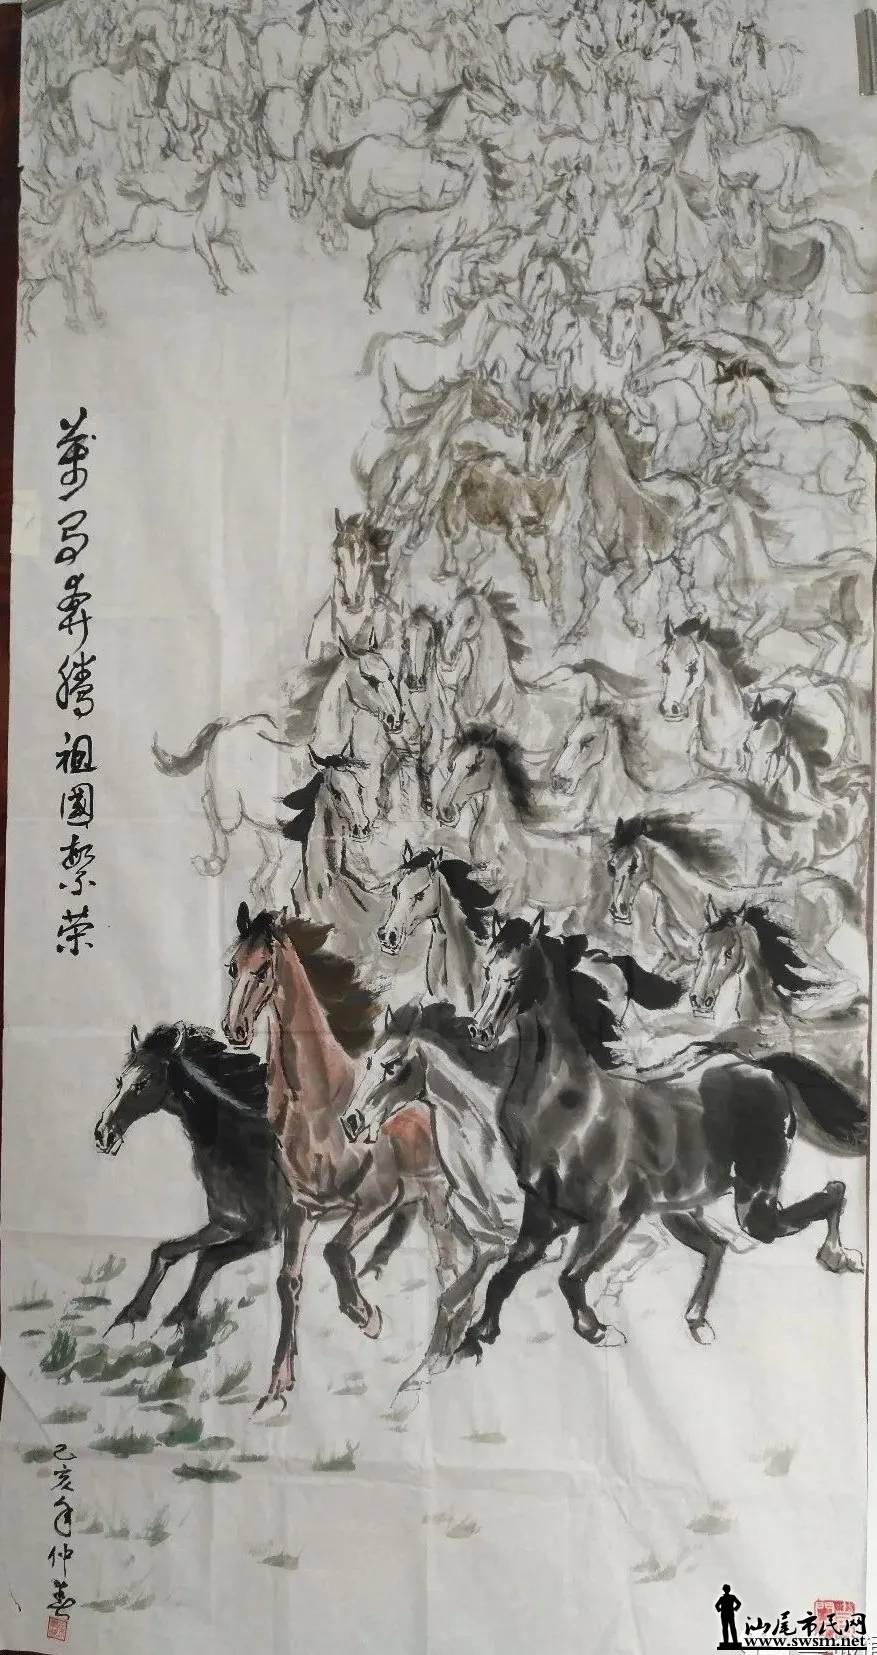 萬马奔腾祖国繁荣
己亥年仲春
汕尾市民网
www.swsm.net